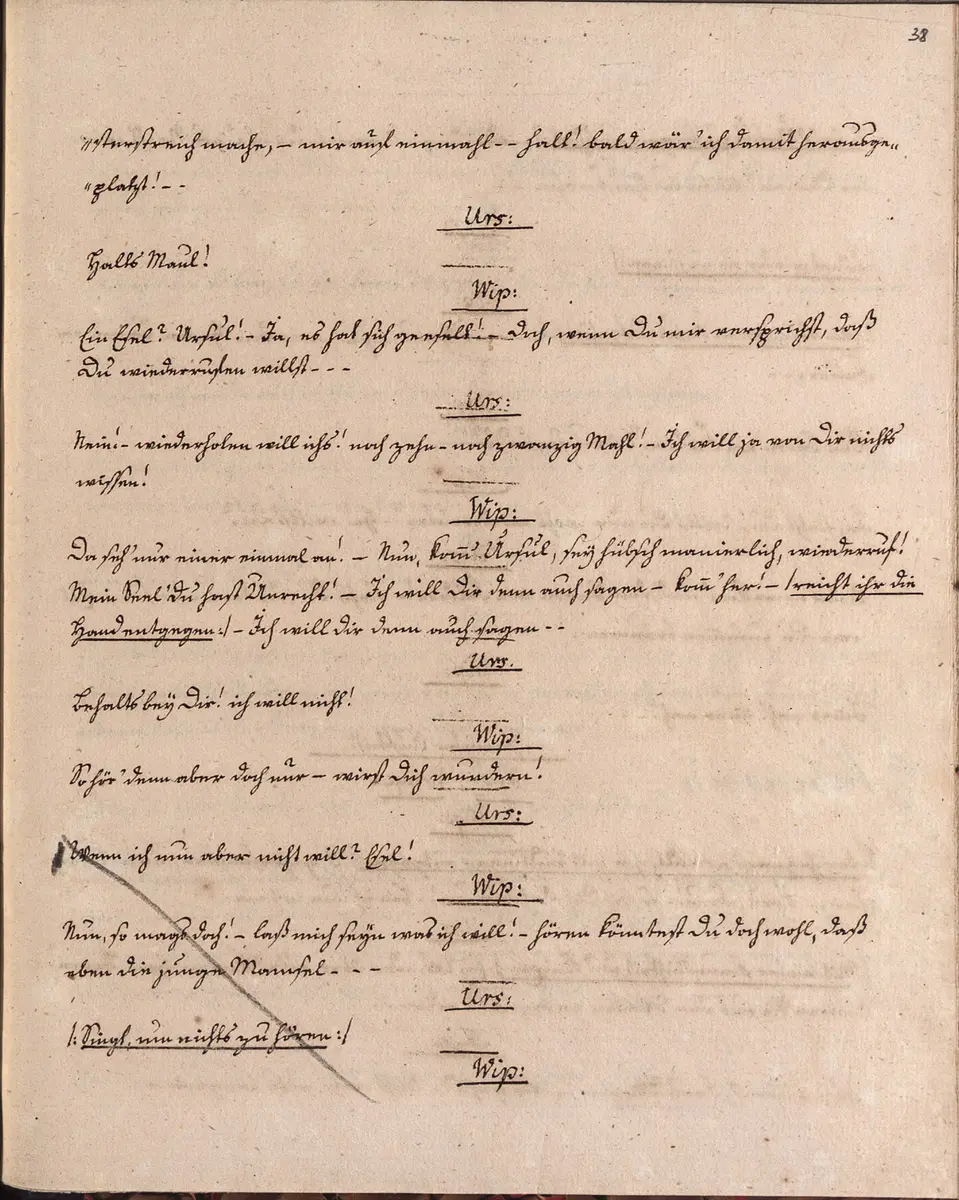 38
"sterstreich mache, – mir auf einmahl - - halt! bald wär' ich damit herausge=
"platzt! - -
Urs:
Halts Maul!
Wip:
Ein Esel? Ursul! - Ja, es hat sich geeselt! - Doch, wenn Du mir versprichst, daß
Du wiederrufen willst - - -
Urs:
Nein! - wiederholen will ichs! noch zehn - noch zwanzig Mahl! - Ich will ja von Dir nichts
wissen!
Wip:
Da seh' nur einer einmal an! - Nun, kom̄ Ursul, sey hübsch manierlich, wiederruf!
Mein Seel' Du hast Unrecht! - Ich will Dir denn auch sagen - kom̄ her! - /:reicht ihr die
Hand entgegen:/ - Ich will dir denn auch sagen - -
Urs.
Behalts bey Dir! ich will nicht!
Wip:
So hör' denn aber doch nur - wirst Dich wundern!
Urs:
Wenn ich nun aber nicht will? Esel!
Wip:
Nun, so mags doch! - laß mich seyn was ich will! - hören könntest Du doch wohl, daß
eben die junge Mamsel - - -
Urs:
/: Singt, um nichts zu hören :/
Wip: